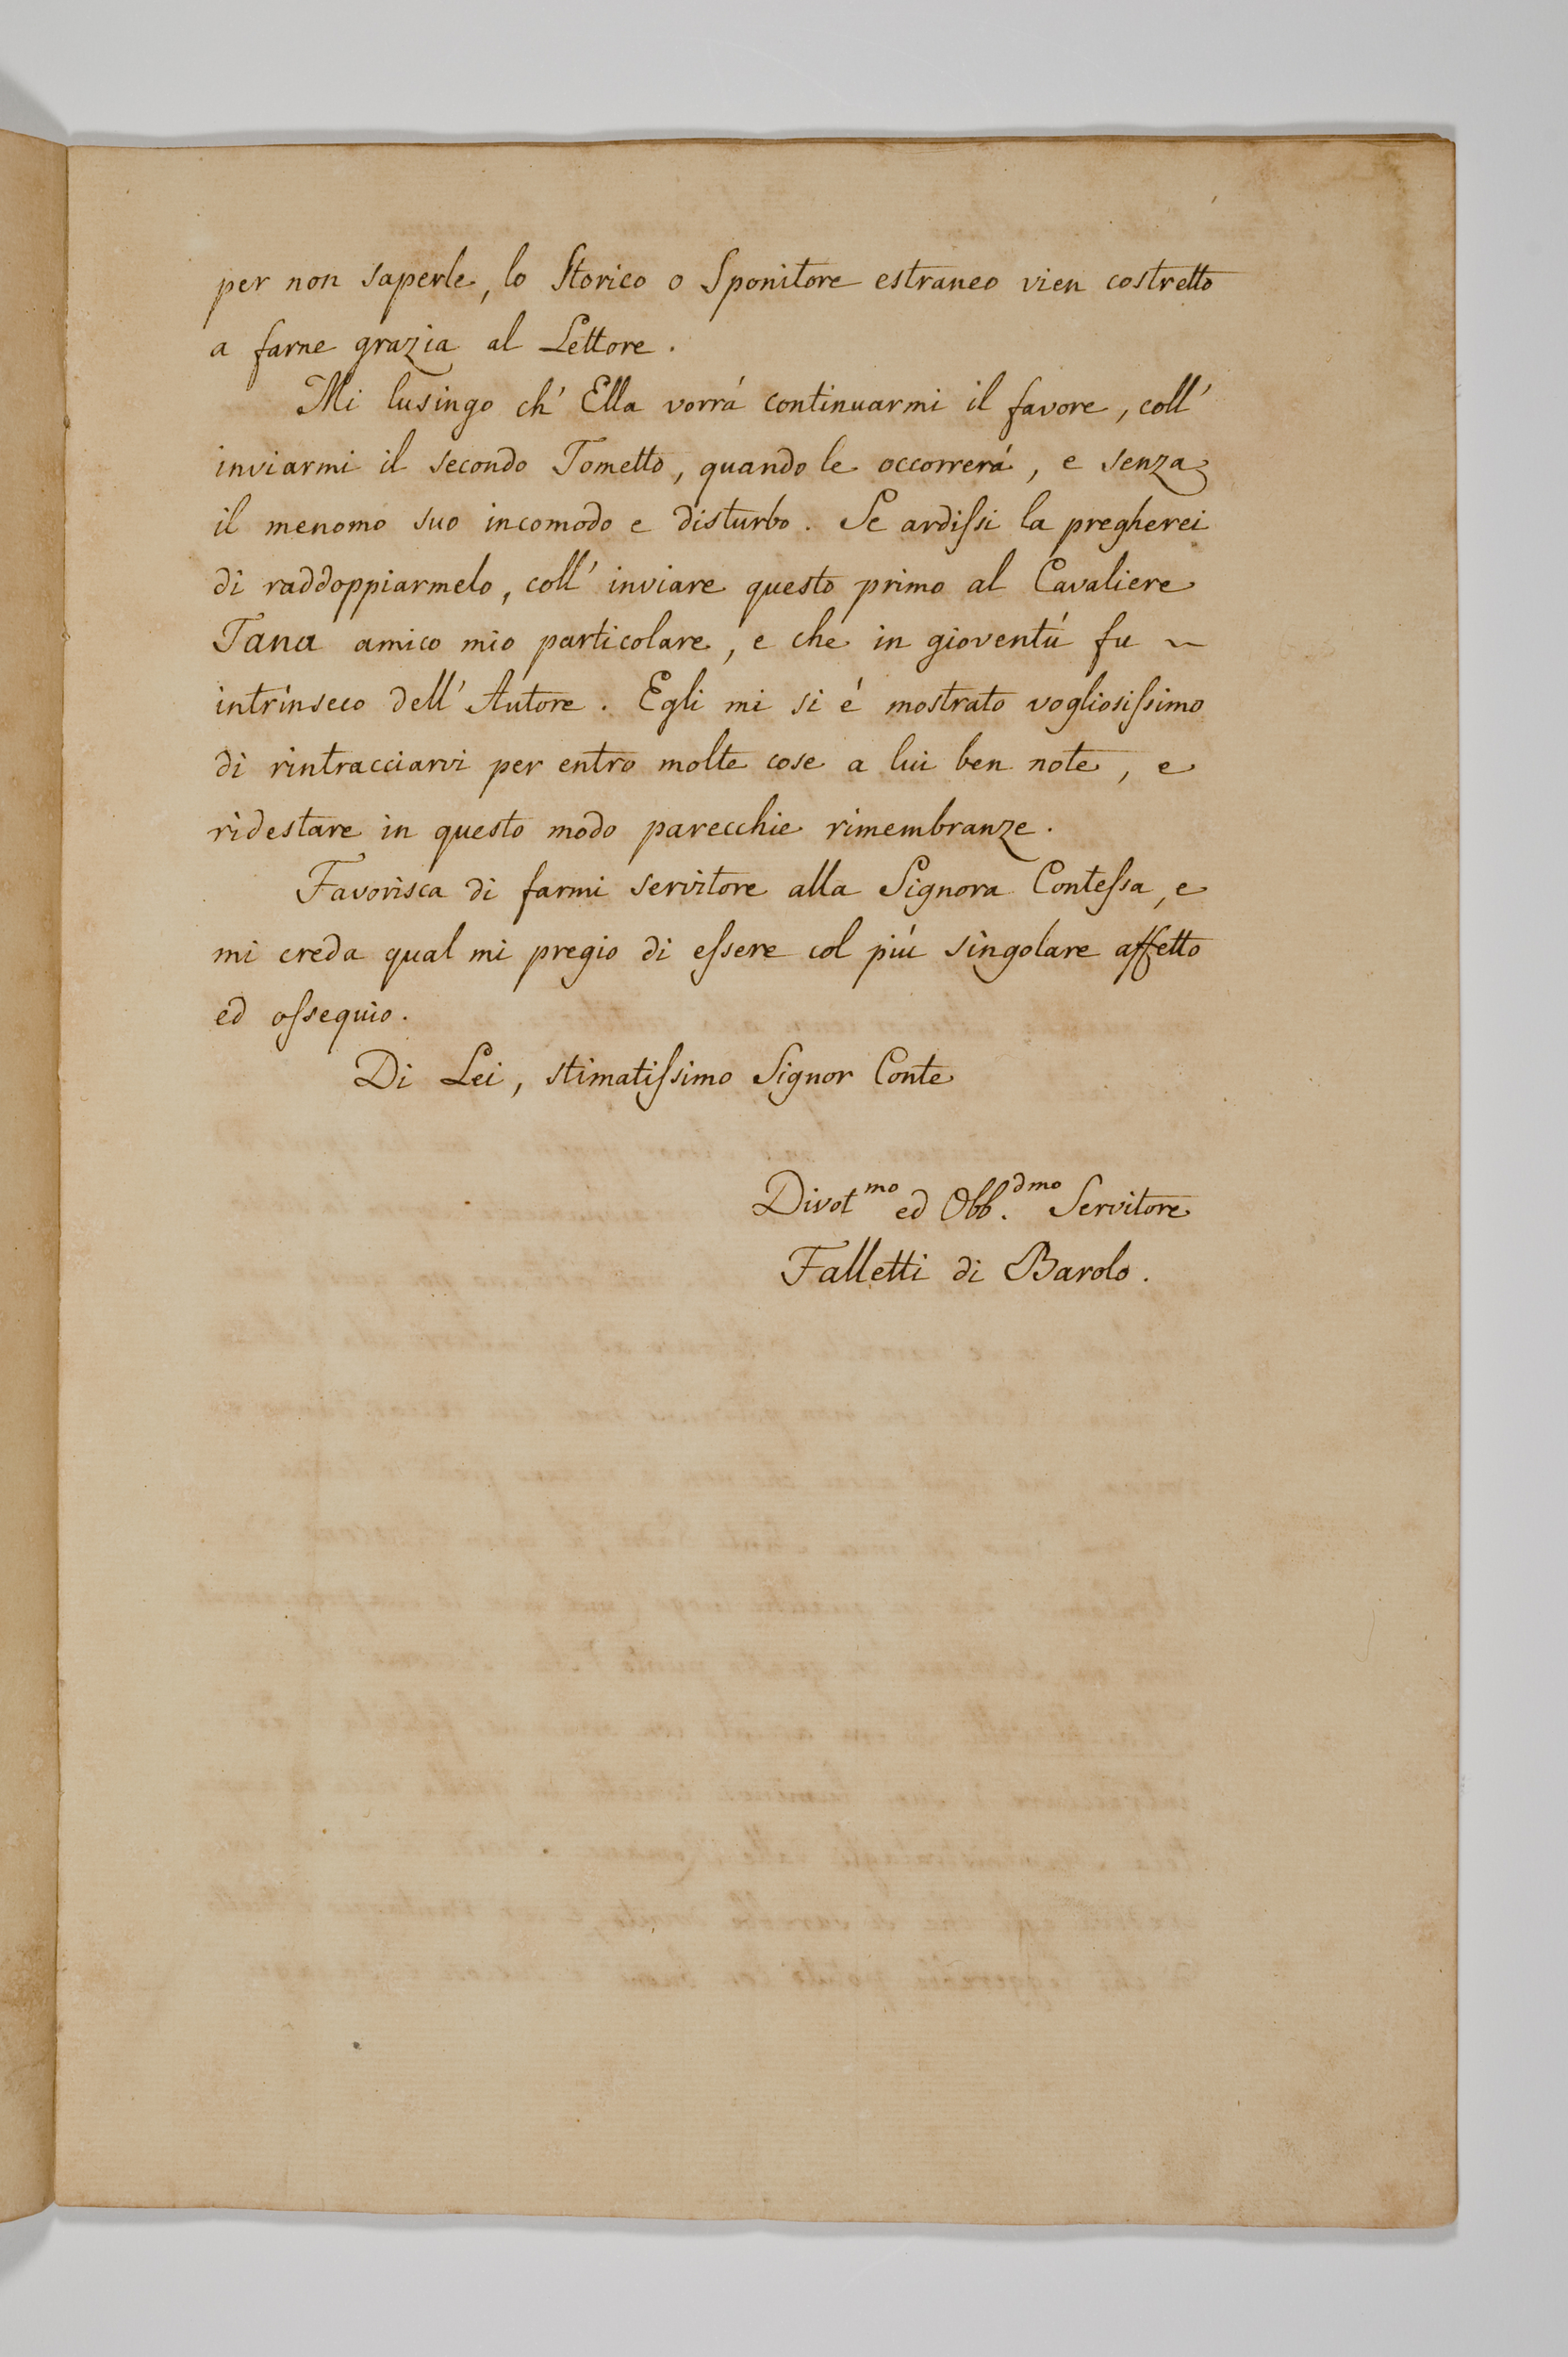 per non saperle, lo Storico o Sponitore estraneo vien costretto
a farne grazia al Lettore.
Mi lusingo ch' Ella vorrá continuarmi il favore, coll'
inviarmi il secondo Tometto, quando le occorrerá, e senza
il menomo suo incomodo e disturbo. Se ardiſsi la pregherei
di raddoppiarmelo, coll' inviare questo primo al Cavaliere
Tana amico mio particolare, e che in gioventú fu ~
intrinseco dell' Autore. Egli mi si é mostrato vogliosiſsimo
di rintracciarvi per entro molte cose a lui ben note, e
ridestare in questo modo parecchie rimembranze.
Favorisca di farmi servitore alla Signora Conteſsa, e
mi creda qual mi pregio di eſsere col piú singolare affetto
ed oſsequio.
Di Lei, stimatiſsimo Signor Conte
Divot^mo ed Obb.^dmo Servitore
Falletti di Barolo.